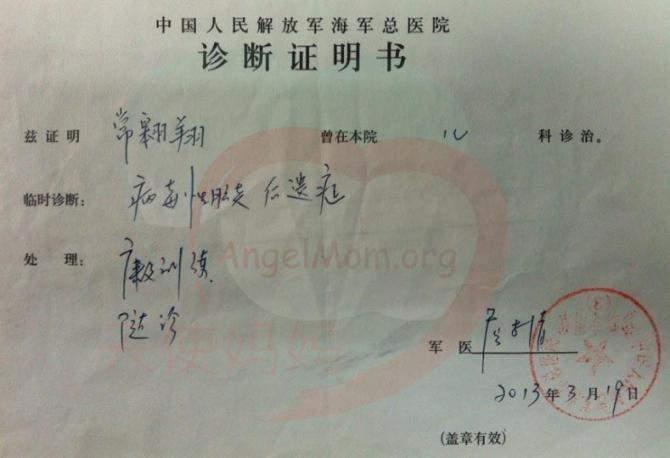 中国人民解放军海军总医院
诊断证明书
兹证明 常翱翔 曾在本院 儿 科诊治。
临时诊断: 病毒性脑炎后遗症
处 理: 康复训练
随诊
军 医
2013年3月19日
(盖章有效)
AngelMom.org
天使妈妈